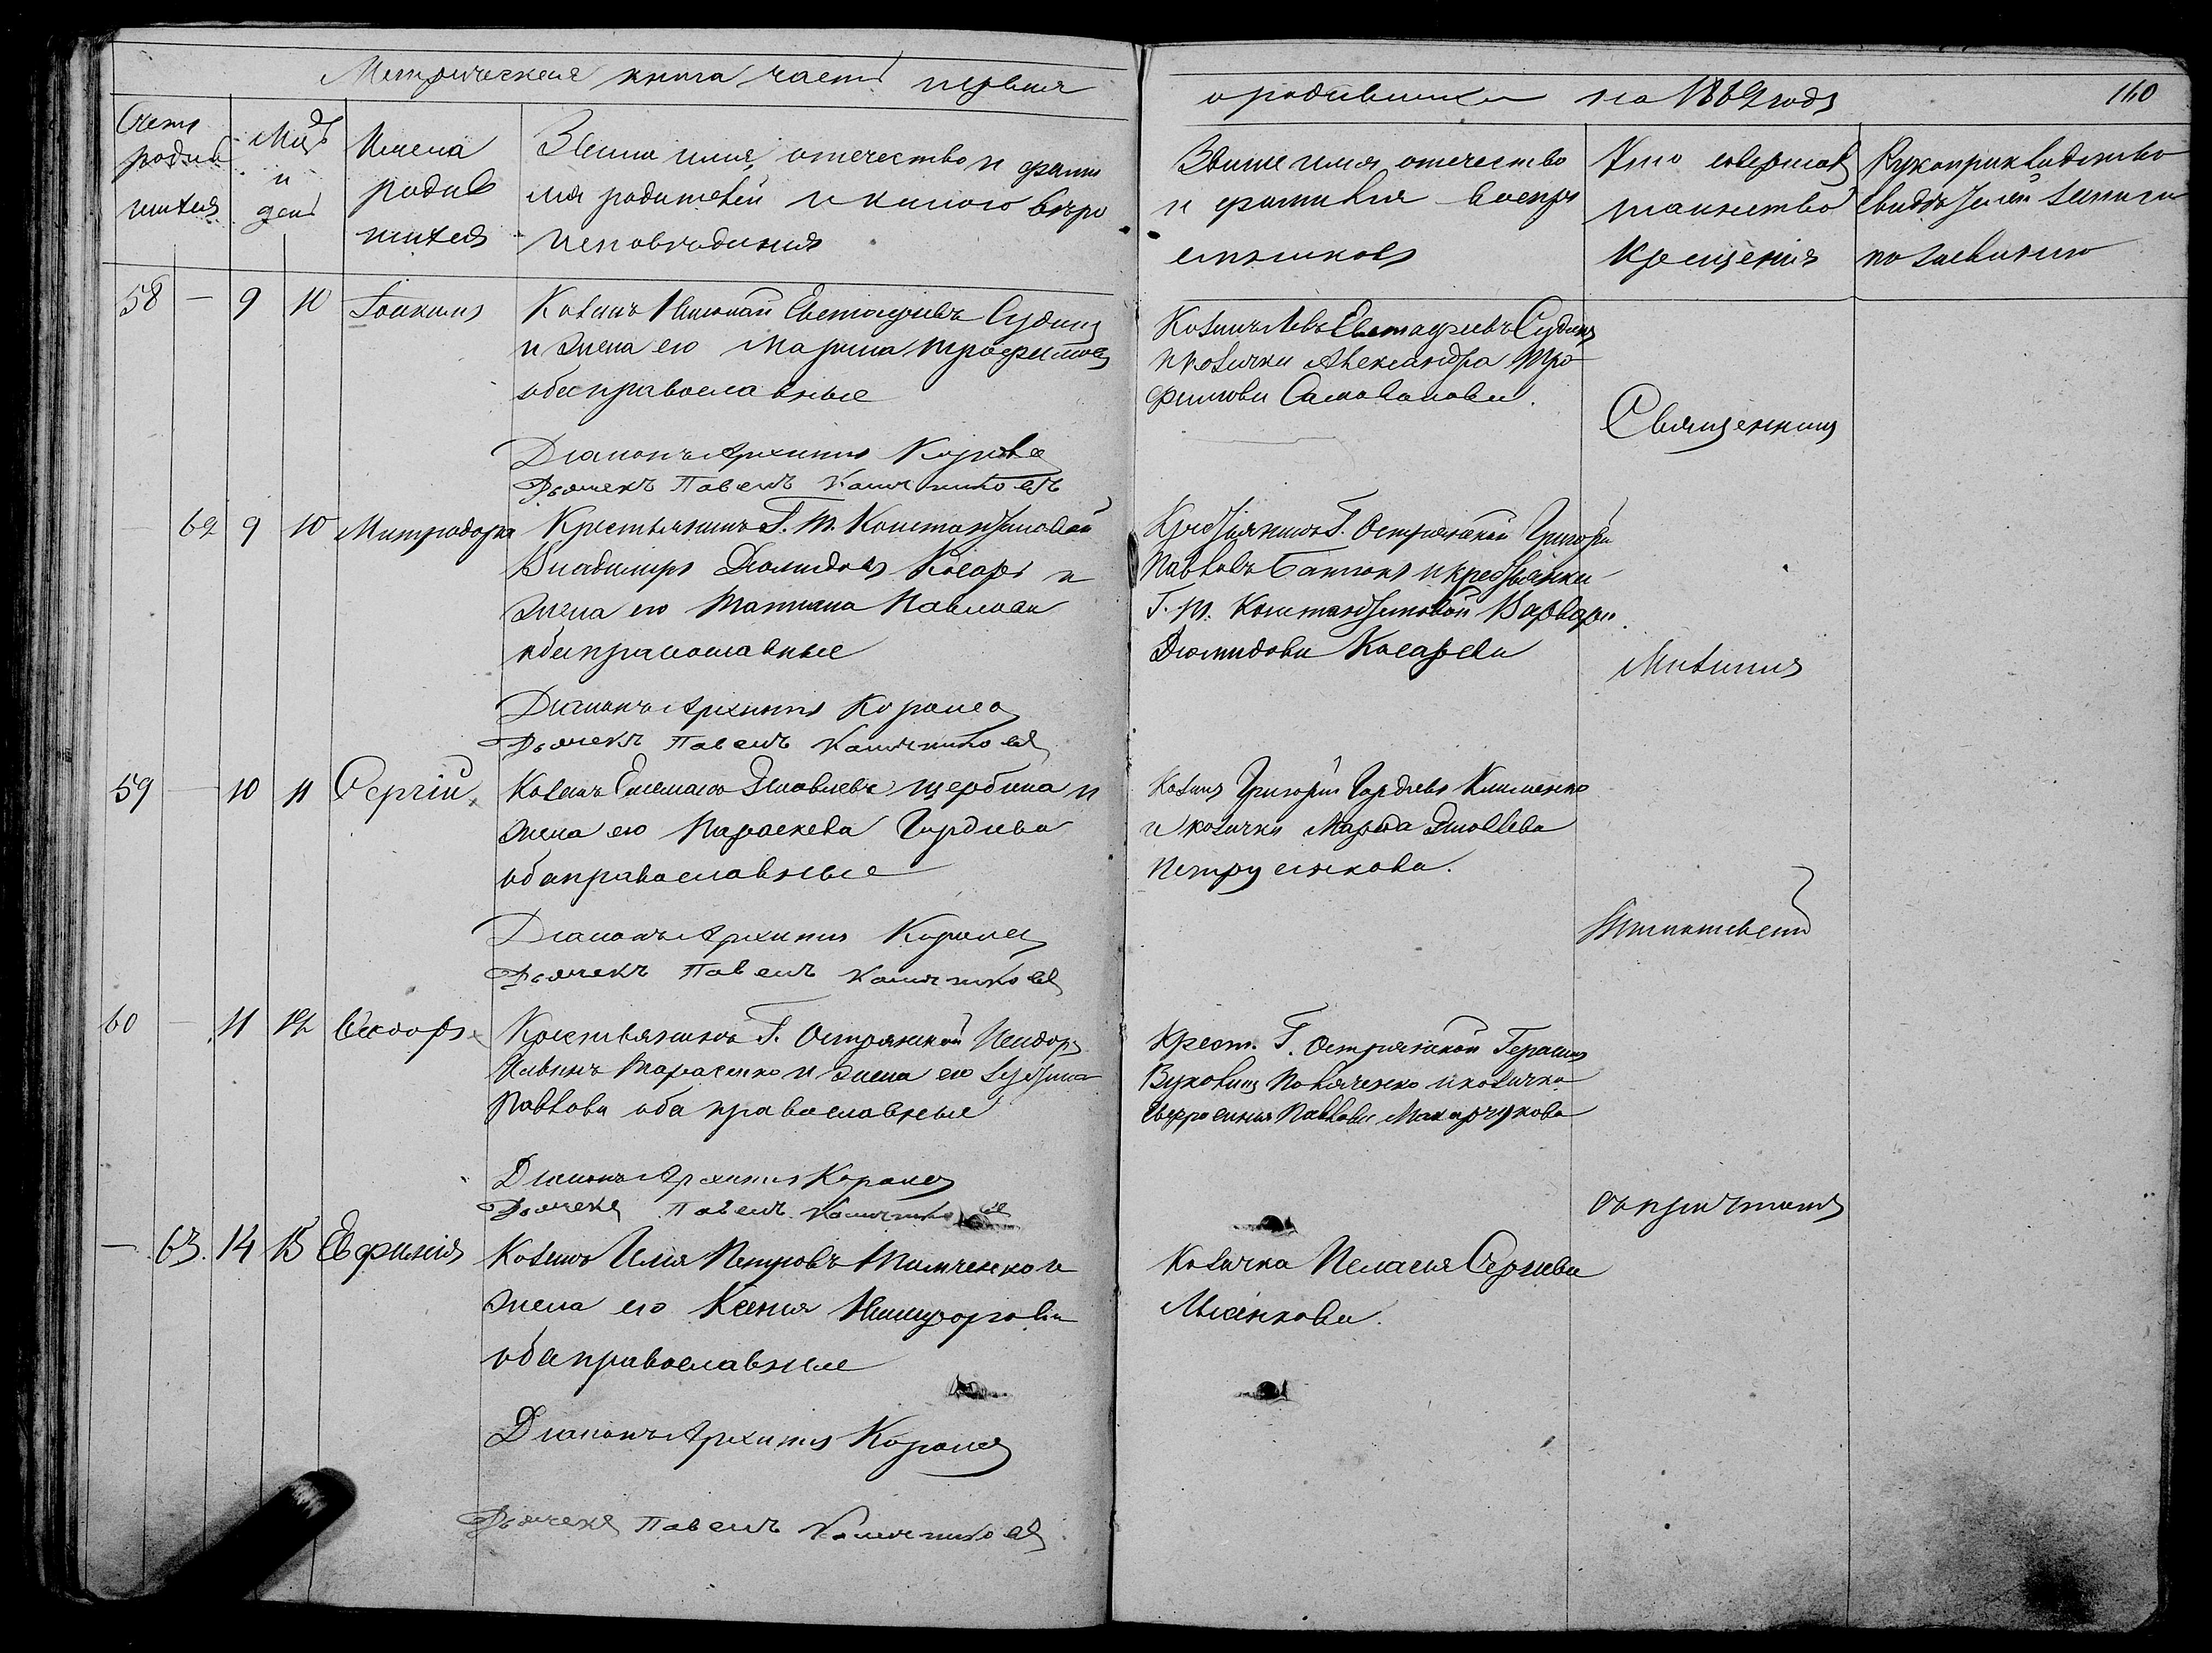 Метрическая книга часть первая
о родившихся на 1862 годъ
160
Счетъ родив шихся
Мцъ и день
Имена родив шихся
Званіе имя, отечество и фами лія родителей и какого веро исповеданія
Званіе имя, отечество и фамилія воспрі емниковъ
Кто совершалъ таинство крещенія
Рукоприкладство свидетелей записи по желанію
58 — 9 10 Іоакимъ
Козакъ Николай Евстафіевъ Судакъ
и жена его Марина Трофимова
оба православные
Козакъ Левъ Евстафіевъ Судакъ
и козачка Александра Тро
фимова Самовалова.
Діаконъ Архипъ
Дьячекъ Павелъ
Священникъ
— 62 9 10 Митродора
Крестьянинъ Г. М. Константиновой
Владимиръ Діомидовъ Косарь и
жена его Татіана Павлова
оба православные
Крестьянинъ Г. Острянской Григорій
Павловъ и крестьянка
Г. М. Константиновой Варвара
Діомидова Косарева
Діаконъ Архипъ
Дьячекъ Павелъ
59 — 10 11 Сергій
Козакъ Яковлевъ Щербина и
жена его Параскева Гордіева
оба православные
Козакъ Григорій Гордіевъ Клименко
и козачка Марфа Яковлева
Петрусенкова.
Діаконъ Архипъ
Дьячекъ Павелъ
60 — 11 12
Крестьянинъ Г. Острянской Исидоръ
Тарасенко и жена его
Павлова оба православные
Крест. Г. Острянской Герасимъ
и козачка
Евфросинія Павлова Макарчукова
Діаконъ Архипъ
Дьячекъ Павелъ
съ причтомъ
— 63. 14 15 Евфимія
Козакъ Илія Петровъ Тимченко и
жена его Ксенія Никифорова
оба православные
Козачка Пелагія Сергіева
Діаконъ Архипъ
Дьячекъ Павелъ